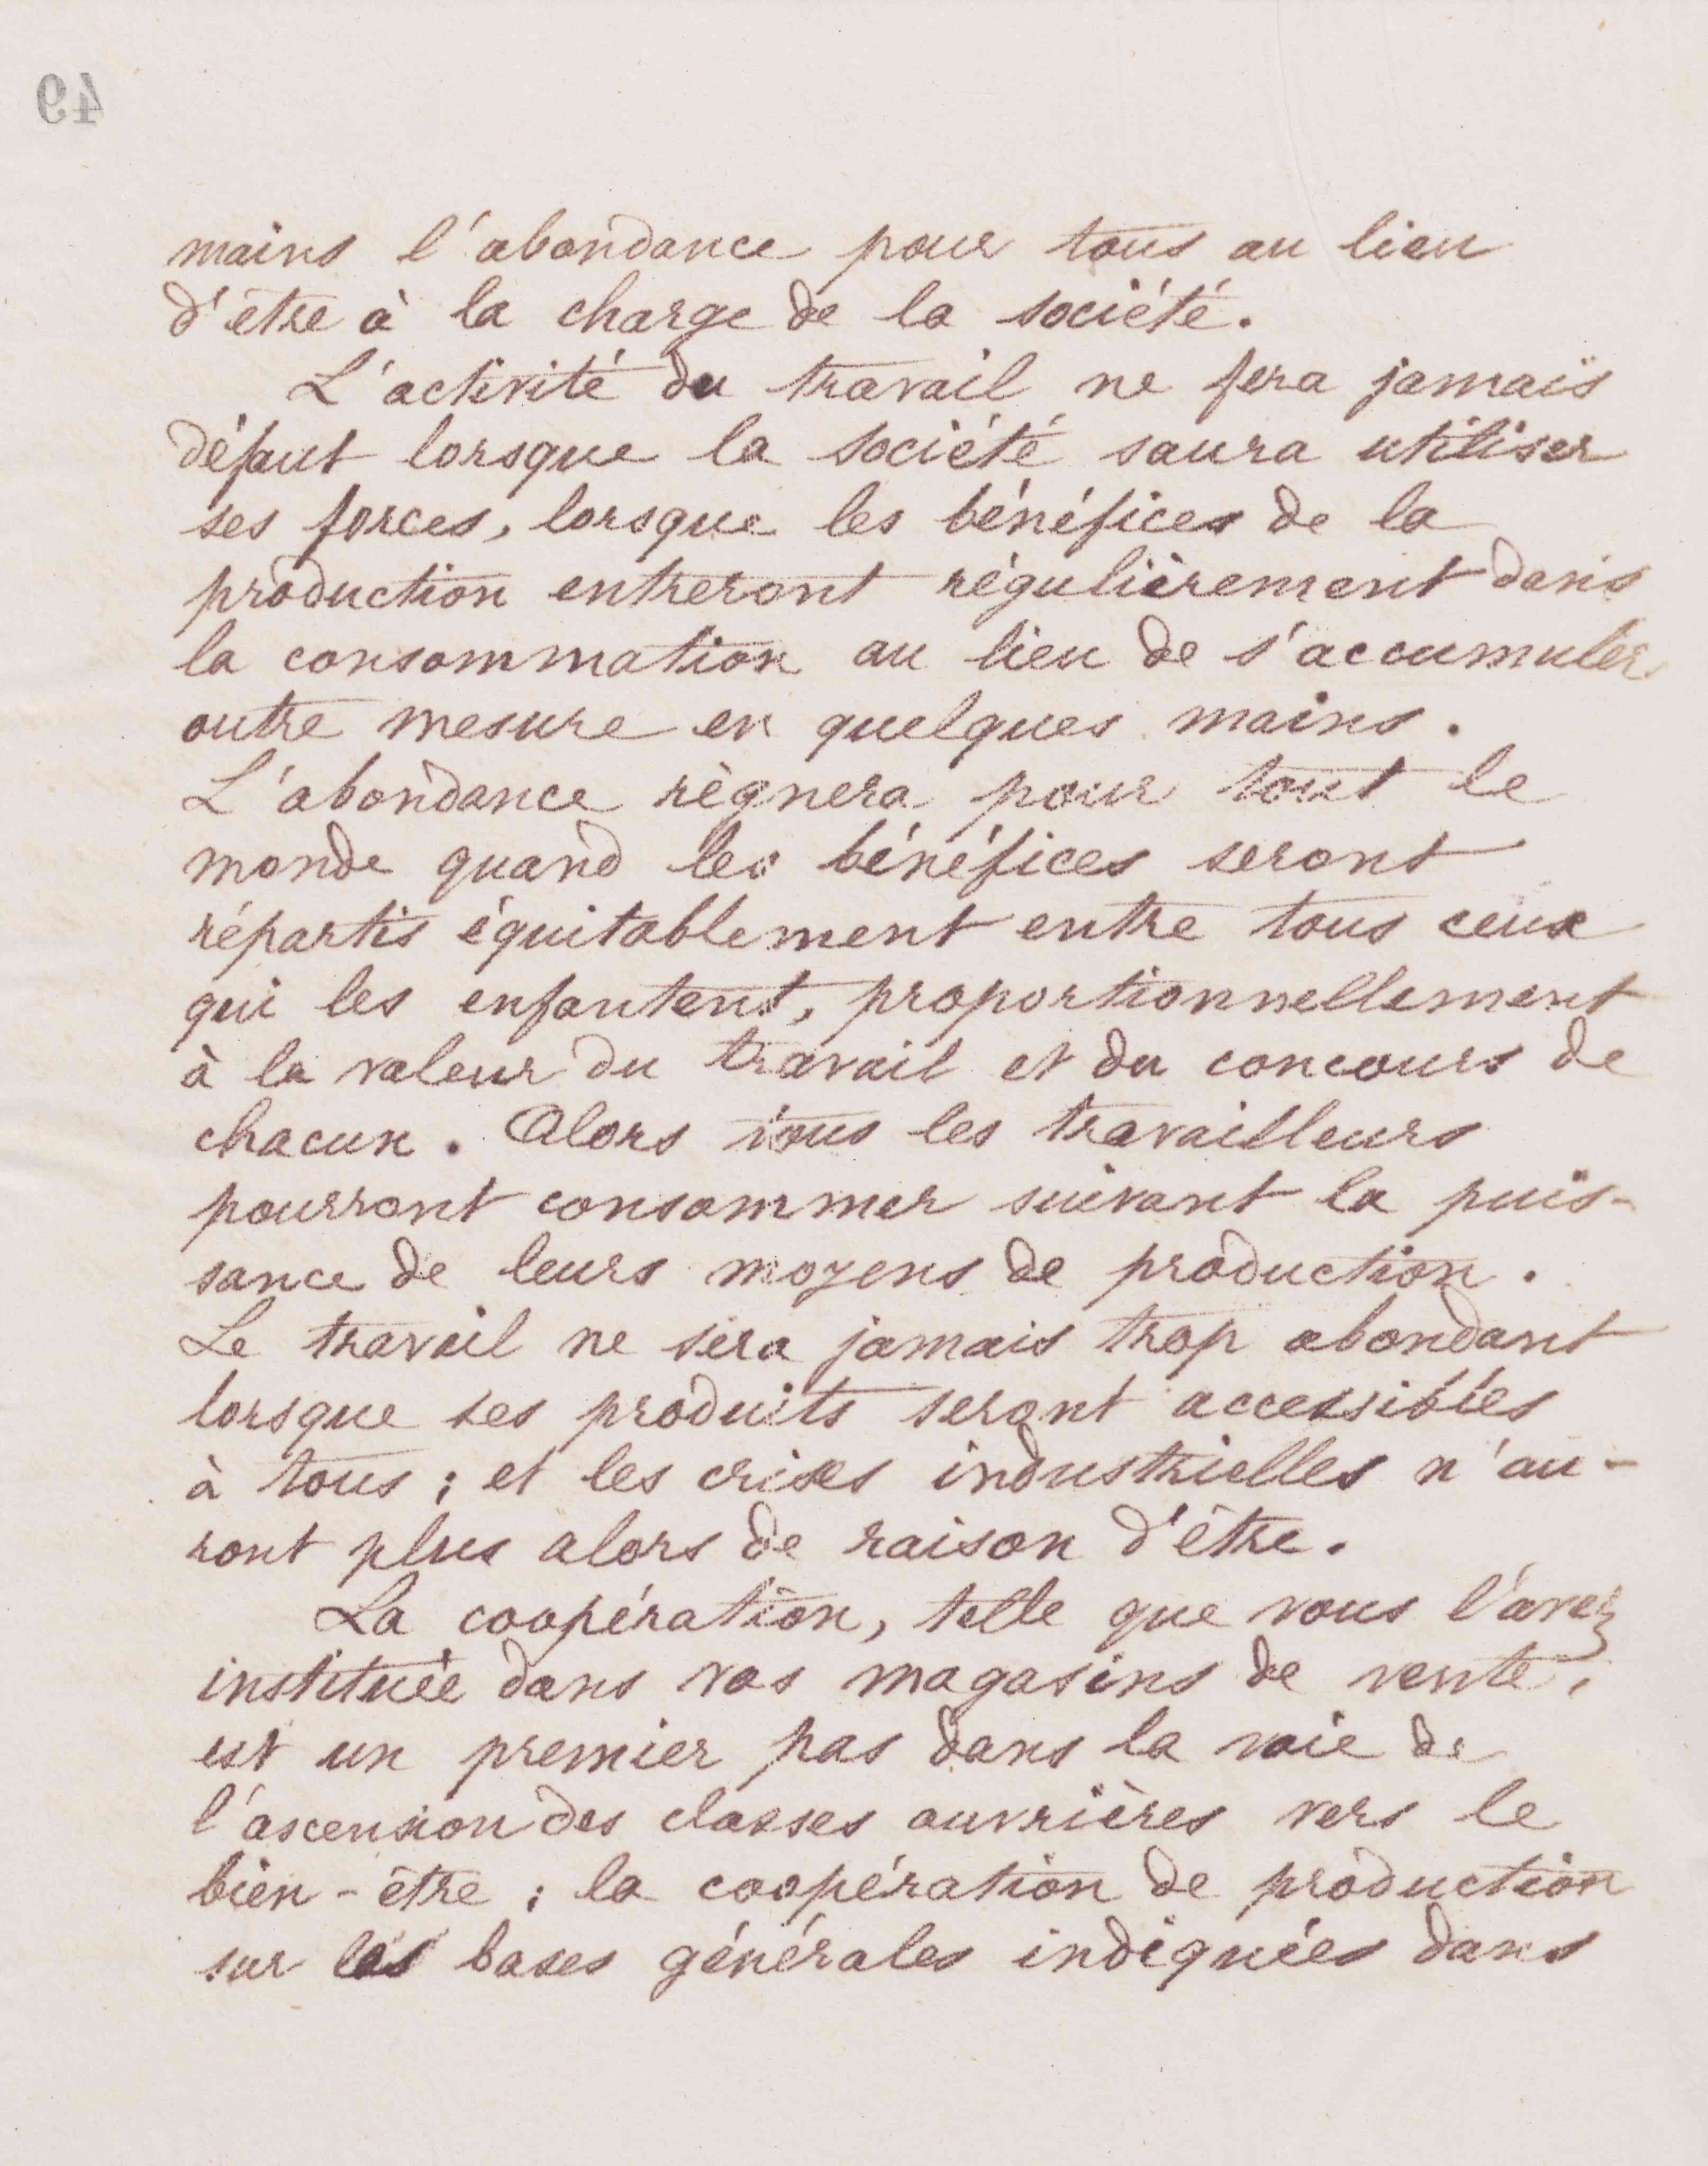 49
mains l'abondance pour tous au lieu
d'être à la charge de la société.
L'activité du travail ne fera jamais
défaut lorsque la société saura utiliser
ses forces, lorsque les bénéfices de la
production entreront régulièrement dans
la consommation au lieu de s'accumuler
outre mesure en quelques mains.
L'abondance règnera pour tout le
monde quand les bénéfices seront
répartis équitablement entre tous ceux
qui les enfantent, proportionnellement
à la valeur du travail et du concours de
chacun. Alors tous les travailleurs
pourront consommer suivant la puis-
sance de leurs moyens de production.
Le travail ne sera jamais trop abondant
lorsque ses produits seront accessibles
à tous ; et les crises industrielles n'au-
ront plus alors de raison d'être.
La coopération, telle que vous l'avez
instituée dans vos magasins de vente,
est un premier pas dans la voie de
l'ascension des classes ouvrières vers le
bien-être ; la coopération de production
sur les bases générales indiquées dans